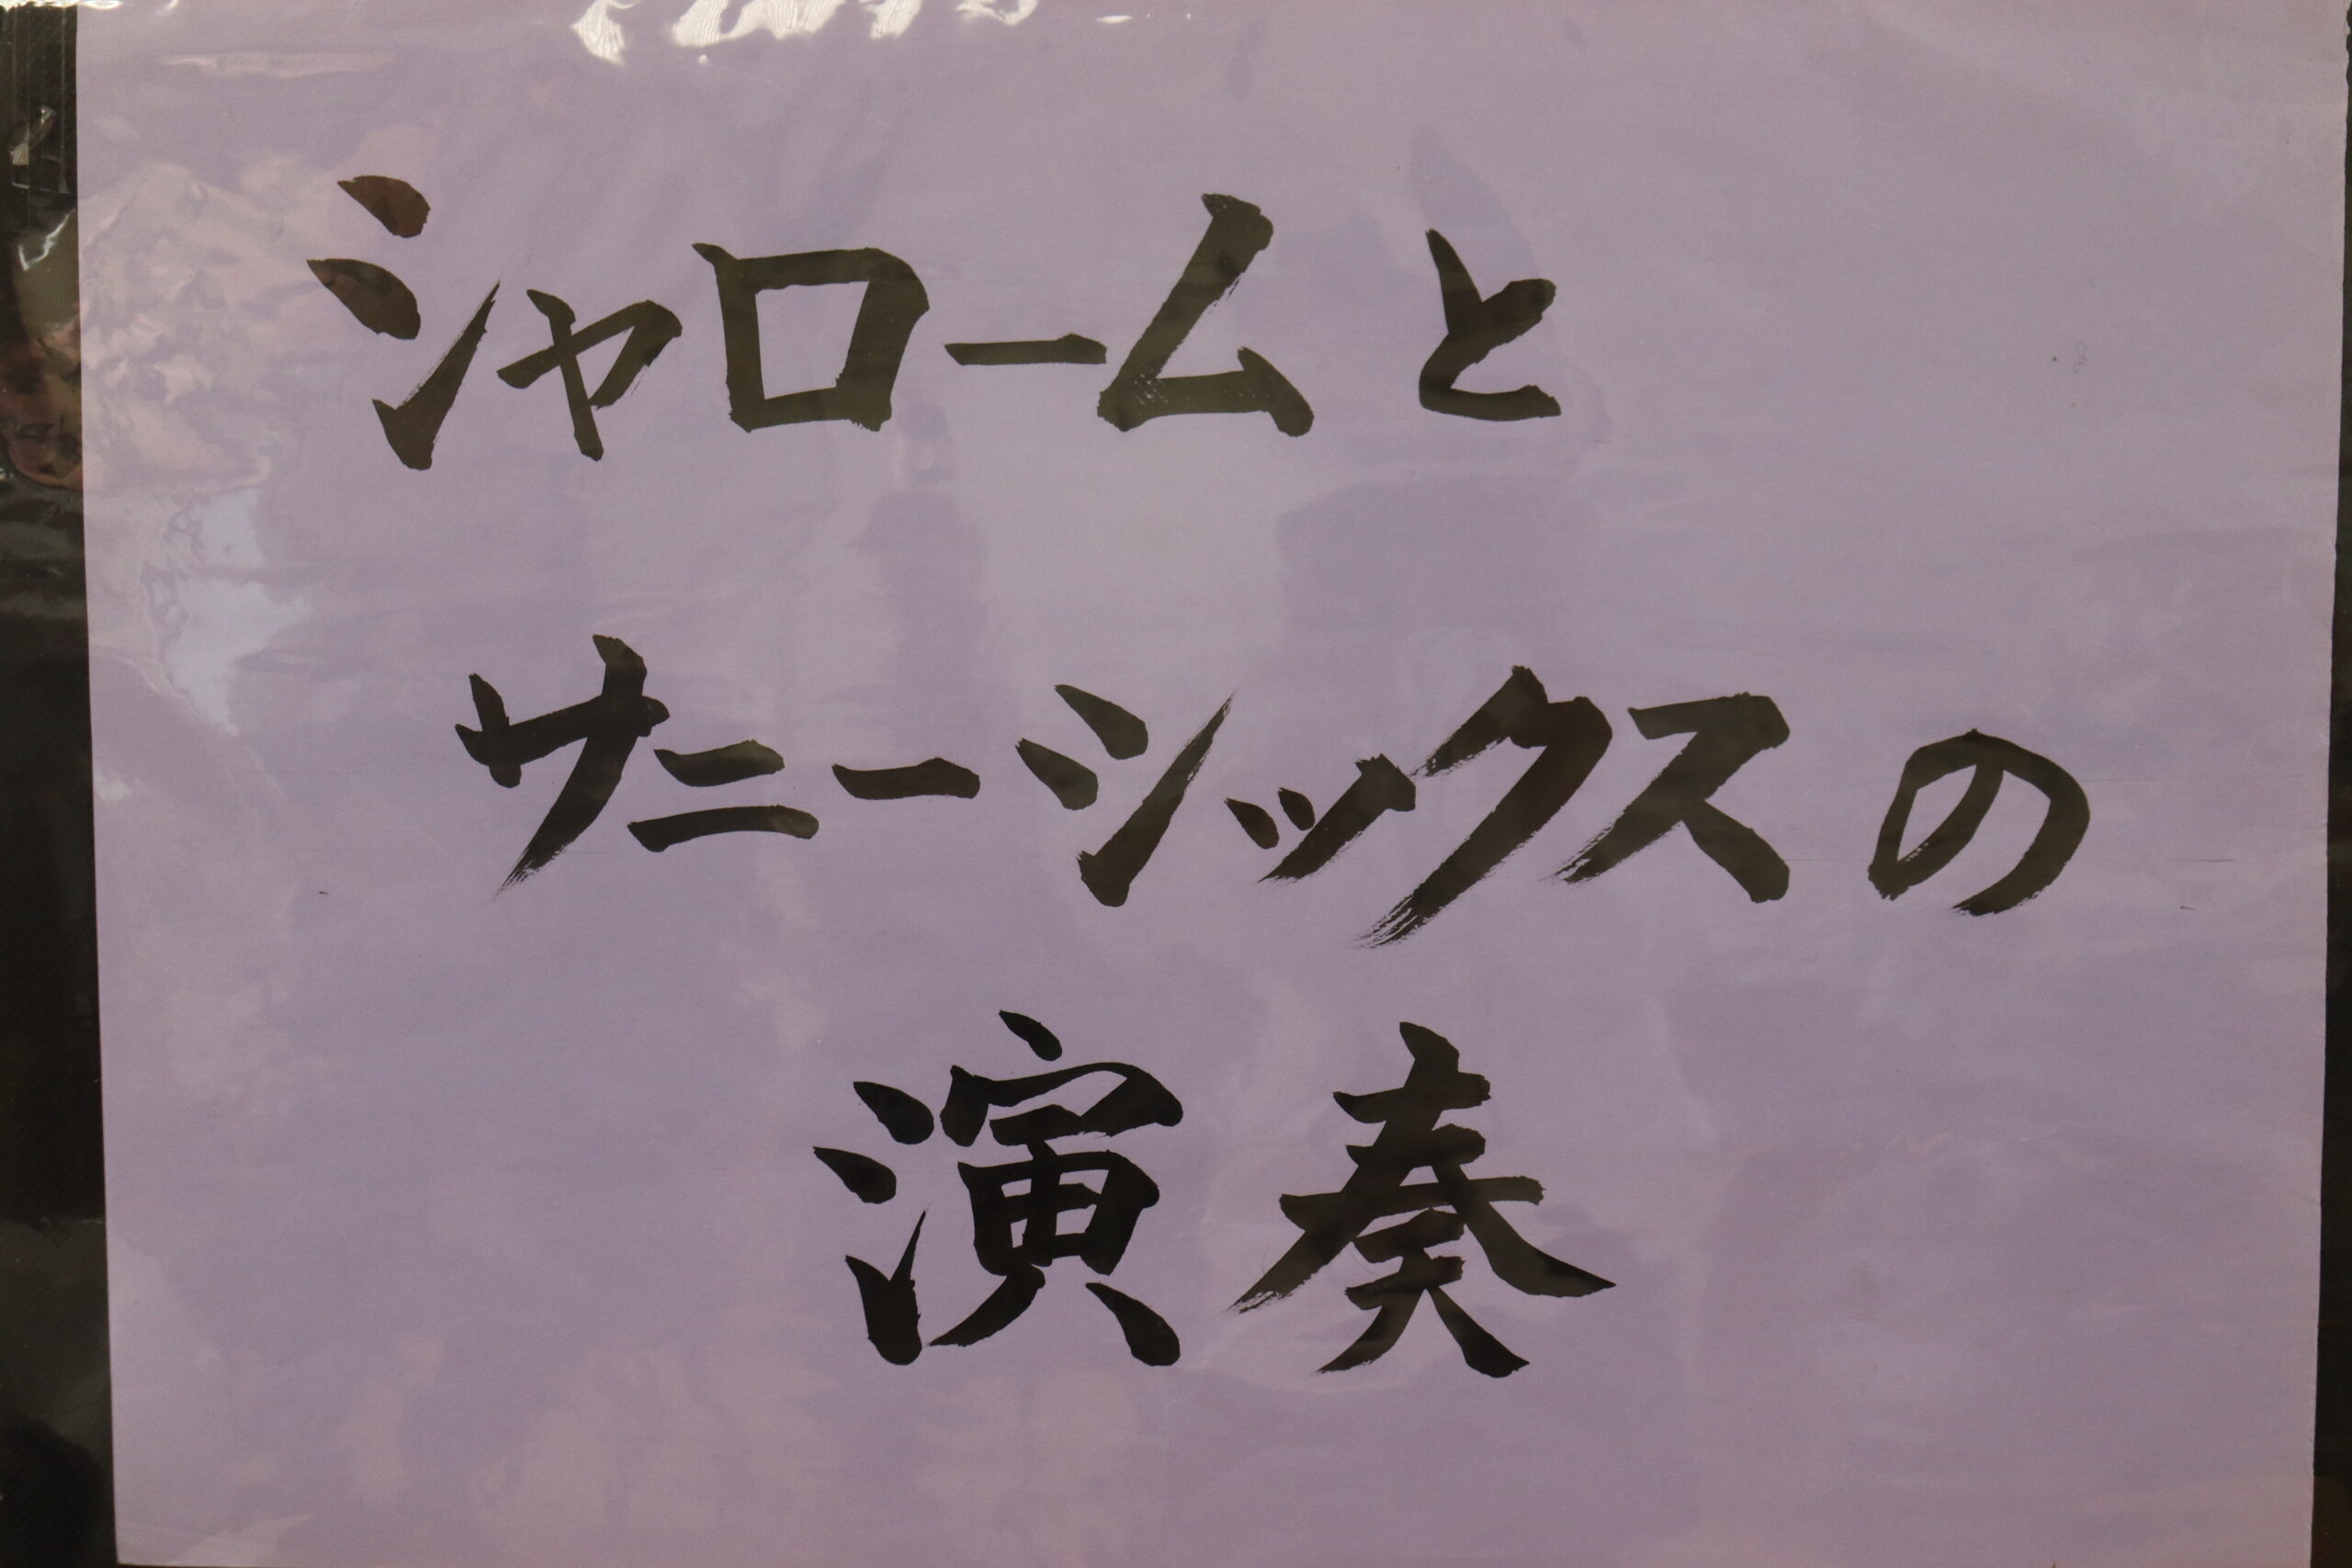 シャロームと
サニーシックスの
演奏